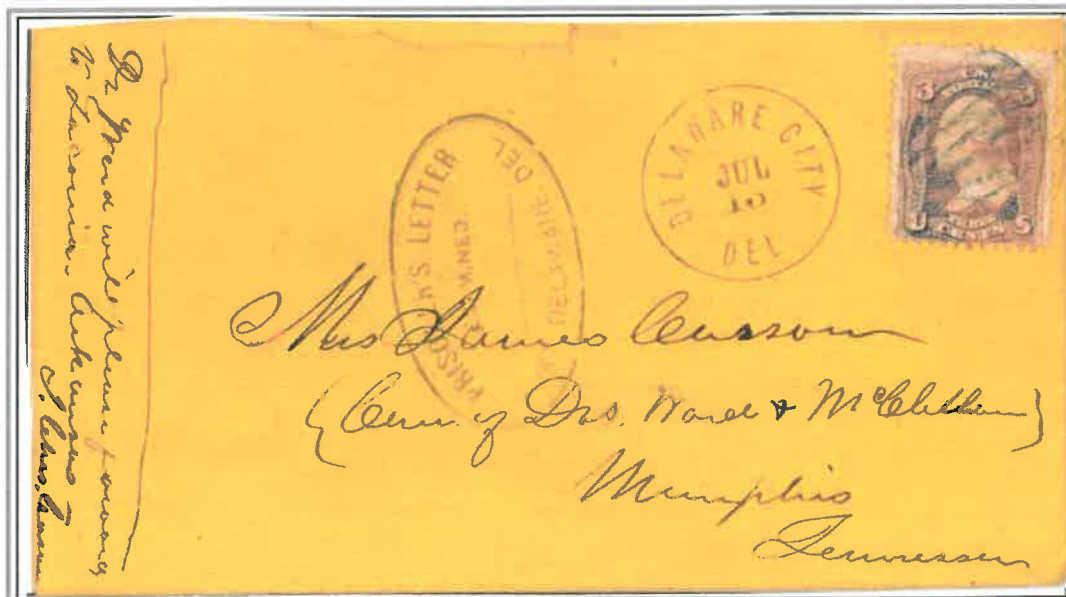 Dr Ward will please forward
to Laconia - Arkansas -
PRISONER'S LETTER
EXAMINED
DELAWARE, DEL
DELAWARE CITY
JUL
15
DEL
3 3
U S
Mrs James
{Care of Drs. Ward & McClellan}
Memphis
Tennessee